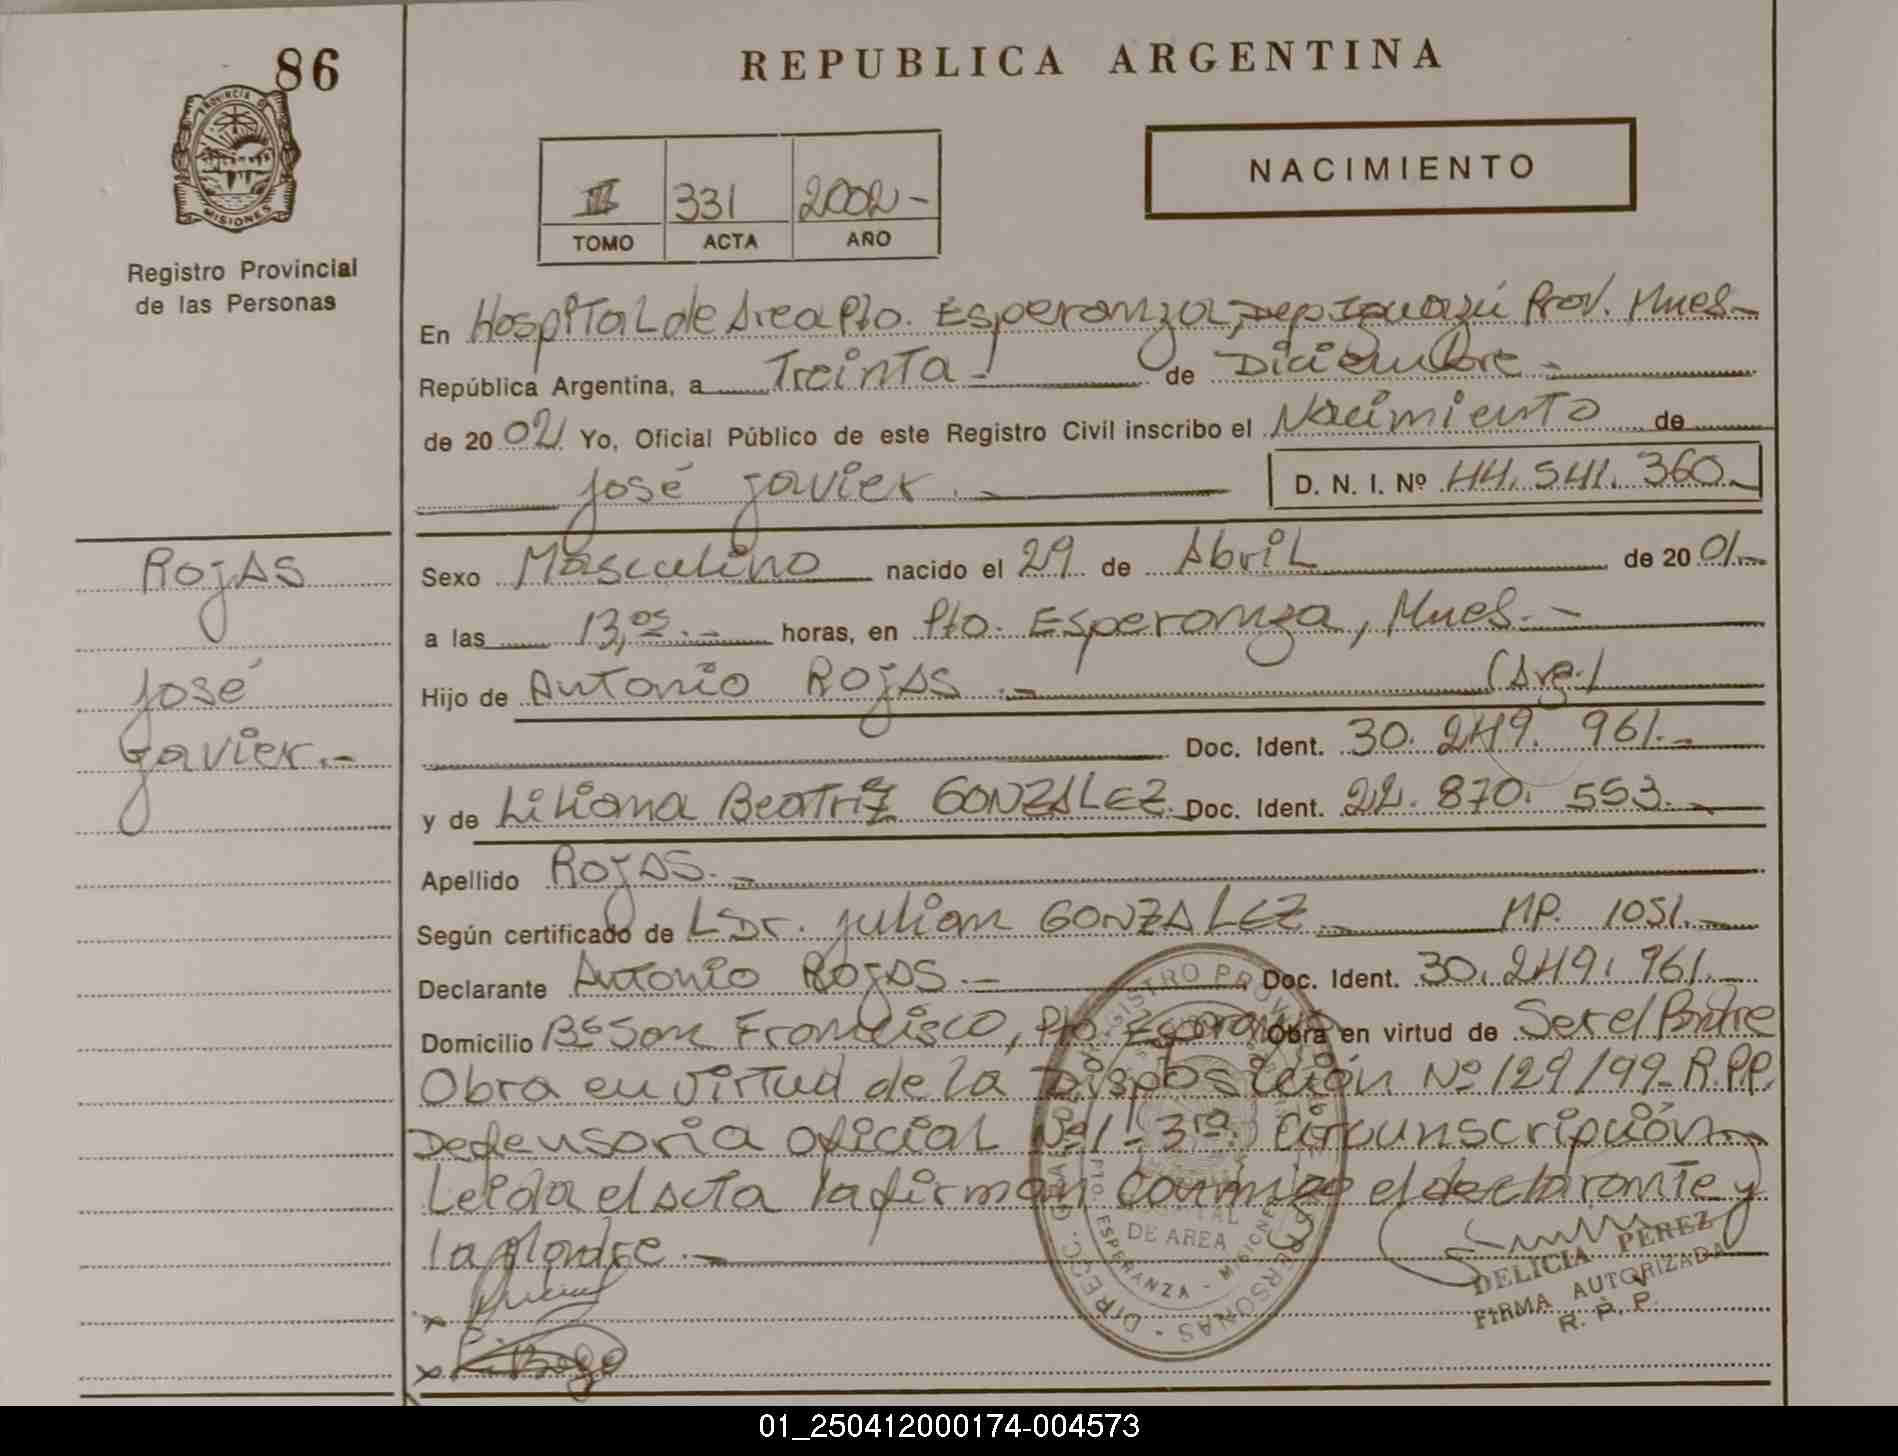 86
REPUBLICA ARGENTINA
PROVINCIA DE
MISIONES
Registro Provincial
de las Personas
III 331 2002-
TOMO ACTA AÑO
NACIMIENTO
En Hospital de Area Pto. Esperanza, Dep Iguazú Prov. Mnes-
República Argentina, a Treinta - de Diciembre.-
de 2002 Yo, Oficial Público de este Registro Civil inscribo el Nacimiento de
José Javier.- D. N. I. Nº 44.541.360.-
ROJAS
José
Javier.-
Sexo Masculino nacido el 29 de Abril de 2001.-
a las 13,05.- horas, en Pto. Esperanza, Mnes.-
Hijo de Antonio ROJAS.- (Arg.)
Doc. Ident. 30.249.961.-
y de Liliana Beatriz GONZALEZ. Doc. Ident. 22.870.553.-
Apellido ROJAS.-
Según certificado de L Dr. Julian GONZALEZ.- MP. 1051.-
Declarante Antonio ROJAS.- Doc. Ident. 30.249.961.-
Domicilio Bº San Francisco, Pto. Esperanza Obra en virtud de Ser el Padre
Obra en virtud de la Disposición Nº 129/99- R.P.P.
Defensoria Oficial Nº 1- 3ra. Circunscripción-
Leida el Acta la firman conmigo el declarante y
la Madre.-
DE AREA
PTO. ESPERANZA - MISIONES
DELICIA PEREZ
FIRMA AUTORIZADA
R. P. P.
x
x
01_250412000174-004573